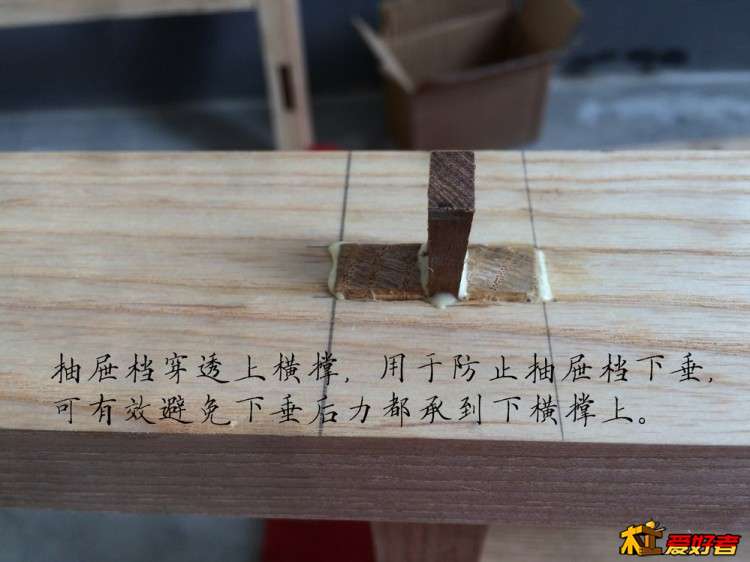 抽屉档穿透上横撑，用于防止抽屉档下垂，
可有效避免下垂后力都承到下横撑上。
木工爱好者